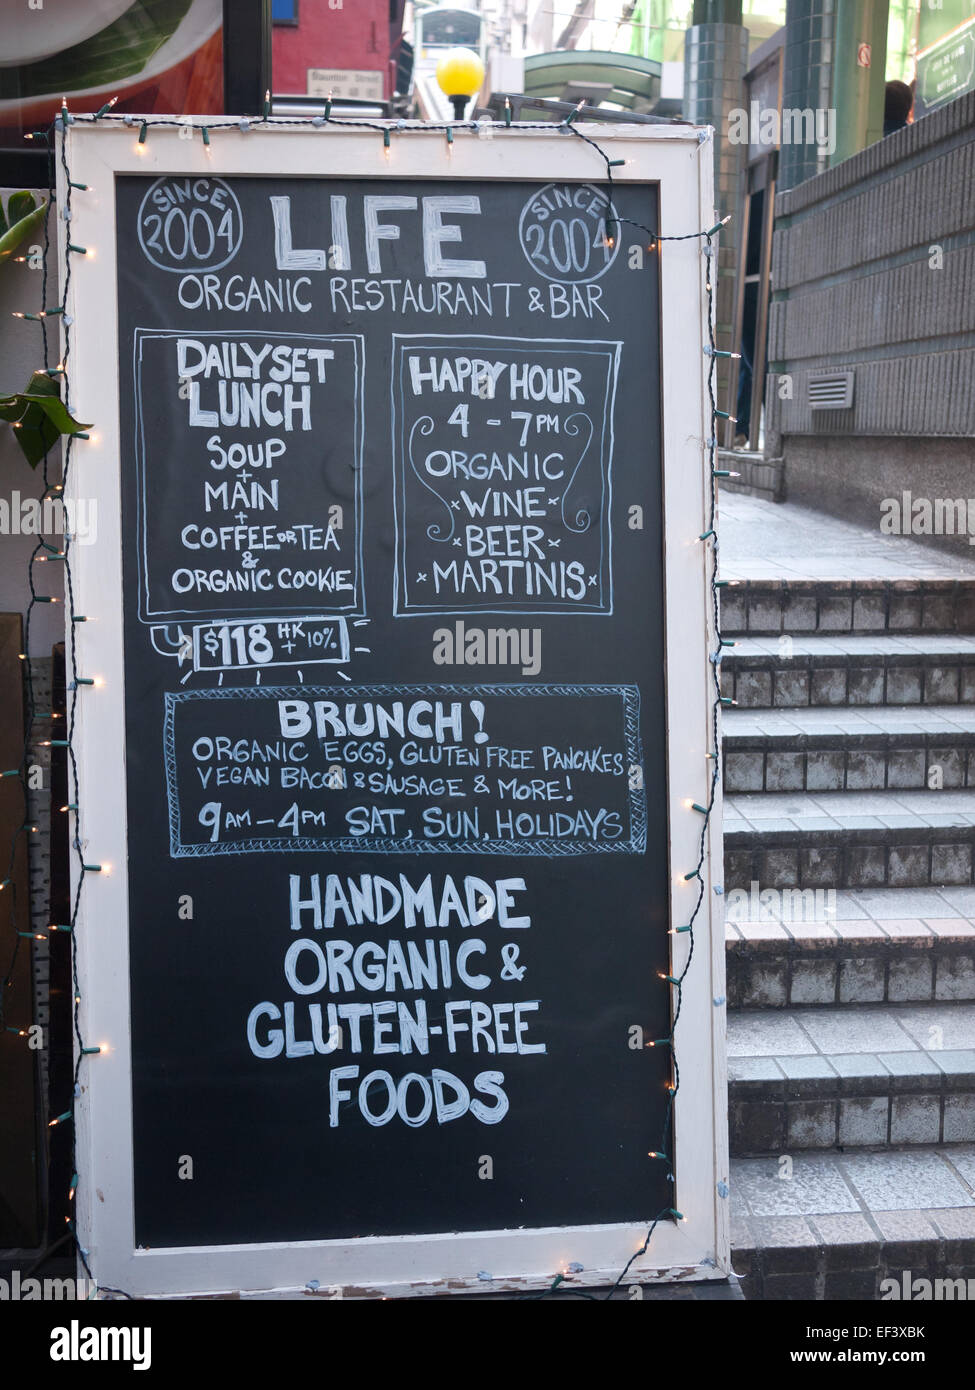 Staunton Street
SINCE 2004
LIFE
SINCE 2004
ORGANIC RESTAURANT & BAR
DAILY SET
LUNCH
SOUP
+
MAIN
+
COFFEE OR TEA
&
ORGANIC COOKIE
$118 HK + 10%
HAPPY HOUR
4 - 7PM
ORGANIC
WINE
BEER
MARTINIS
BRUNCH!
ORGANIC EGGS, GLUTEN FREE PANCAKES
VEGAN BACON & SAUSAGE & MORE!
9AM - 4PM SAT, SUN, HOLIDAYS
HANDMADE
ORGANIC &
GLUTEN-FREE
FOODS
alamy stock photo
alamy
EF3XBK
www.alamy.com